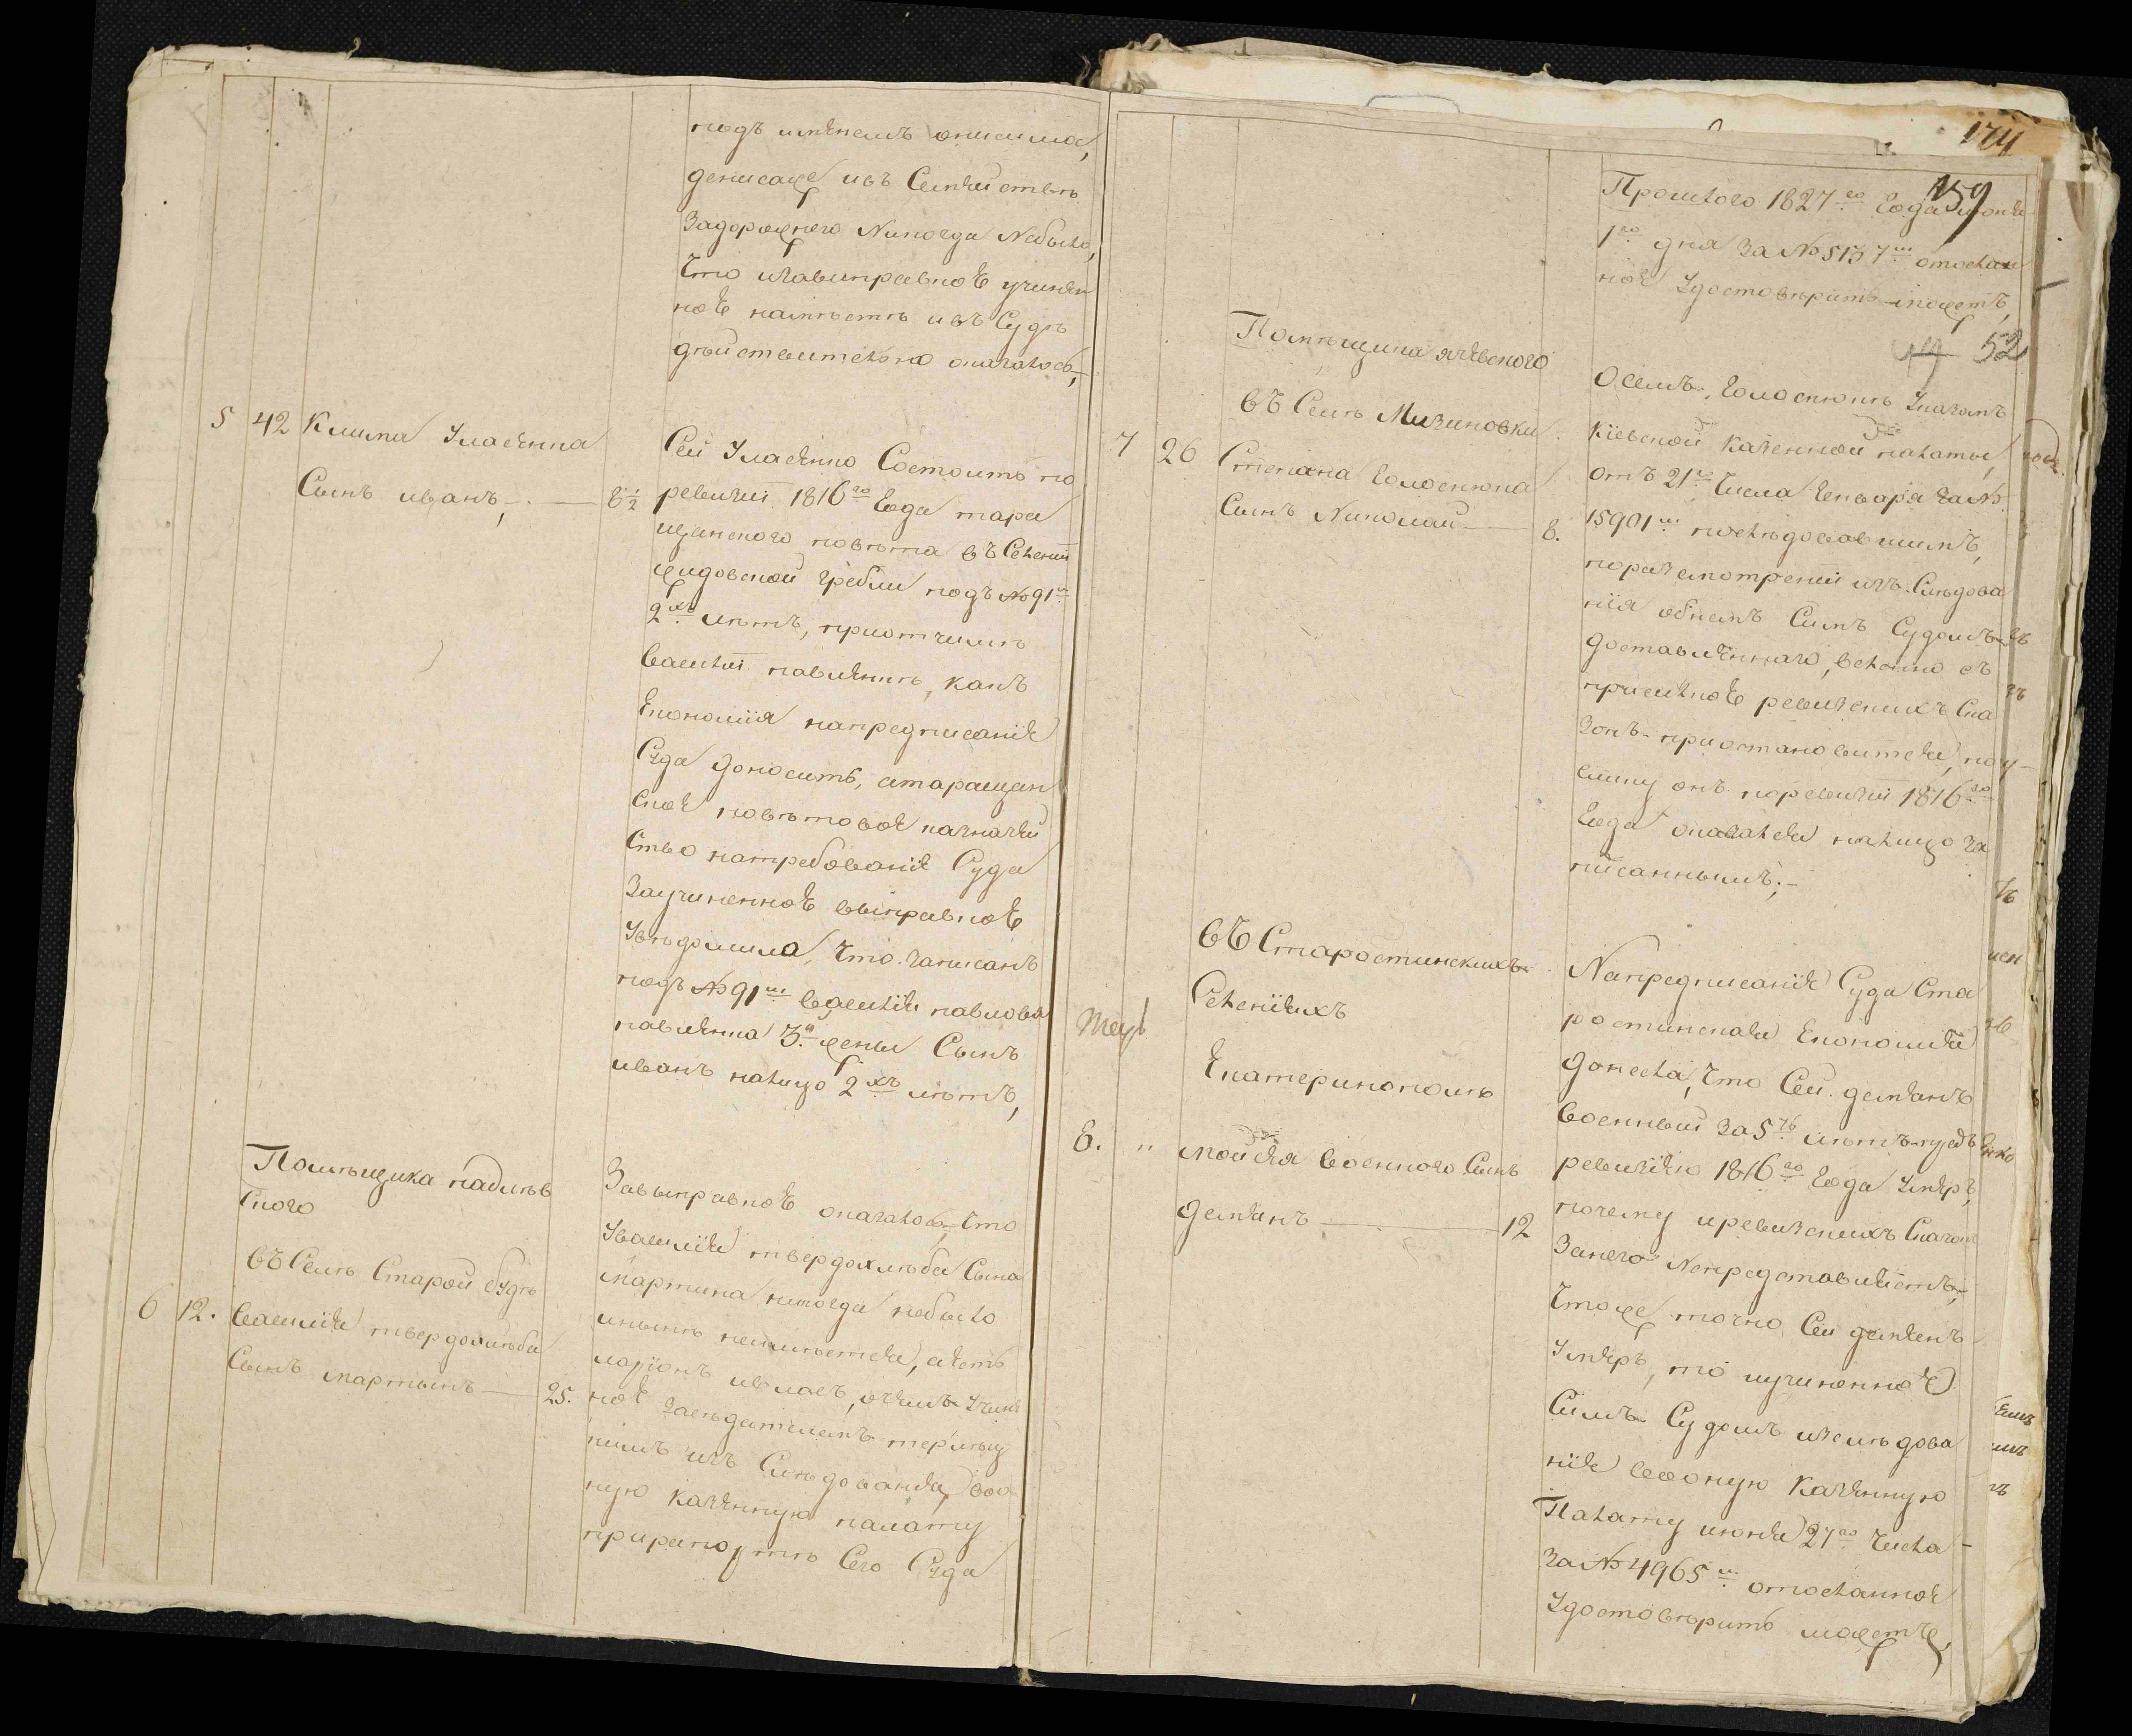 подъ имѣнемъ онисима,
денисаже ивъ Семѣйствѣ
Задорожнего Никогда Небыло,
Что исавиправкоЕ учинѣн
ноЕ намѣстѣ ивъ Судѣ
дѣйствительно оказалось,
5 42 Клима Уласѣнка
Сынъ иванъ, — 8½
Сей Уласѣнко Состоитъ по
ревизіи 1816го Года тара
щанского повѣта въ Селеніи
жидовской гребли подъ №91м
2хъ лѣтъ, приотчимѣ
василіи павлѣнкѣ, какъ
Економія напредписаніе
Суда доноситъ, атаращан
ское повѣтовое казначей
ство натребованіе Суда
ЗаучиненноЕ виправкоЕ
Увѣдомила, Что записанъ
подъ №91м василій павловъ
павлѣнка 3й жены Сынъ
иванъ налицо 2хъ лѣтъ,
Помѣщика
ского
въ Селѣ Старой будѣ
6 12. Василія твердохлѣба
Сынъ мартынъ — 25.
ЗавыправкоЕ оказалось, Что
Увасилія твердохлѣба Сына
мартина никогда небыло
инынѣ неимѣется, аесть
ларіонъ ивласъ, очемъ Учинѣ
ноЕ Засѣдателемъ
нимъ изъ Слѣдованія, воо
ную казѣнную палату
прирапортѣ Сего Суда
174
159
Прошлого 1827го Года июня
1го дня За №5137м отослан
ное Удостовѣрить можетъ,
49 52
Помѣщика
въ Селѣ Мизиновки
7 26 Степана Голоскока
Сынъ Николай — 8.
Осемъ Голоскокѣ Указомъ
Кіевской Казенной палаты,
отъ 21го Числа Генваря за №
15901м послѣдовавшимъ,
поразсмотреніи изъ Слѣдова
нія обнемъ Симъ Судомъ
доставлѣнного, велѣнно съ
присилкоЕ ревизскихъ Ска
зокъ приостановится, по
елику онъ поревизіи 1816го
Года оказался налицо за
писаннымъ;
въ Старостинскихъ
Селеніяхъ
Екатеринополѣ
8. " мойсея военного Сынъ
демянъ — 12
Напредписаніе Суда Ста
ростинская Економія
донесла, Что Сей демянъ
военный За5ть лѣтъ предъ
ревизіею 1816го Года Умѣръ,
почему иревизскихъ Сказокъ
Занего Непредставляетъ,
Чтоже точно Сей демянъ
Умѣръ, то иучиненноЕ
Симъ Судомъ изслѣдова
ніе воону Казѣнную
Палату июня 27го Числа
За №4965м отосланное
Удостовѣрить можетъ,